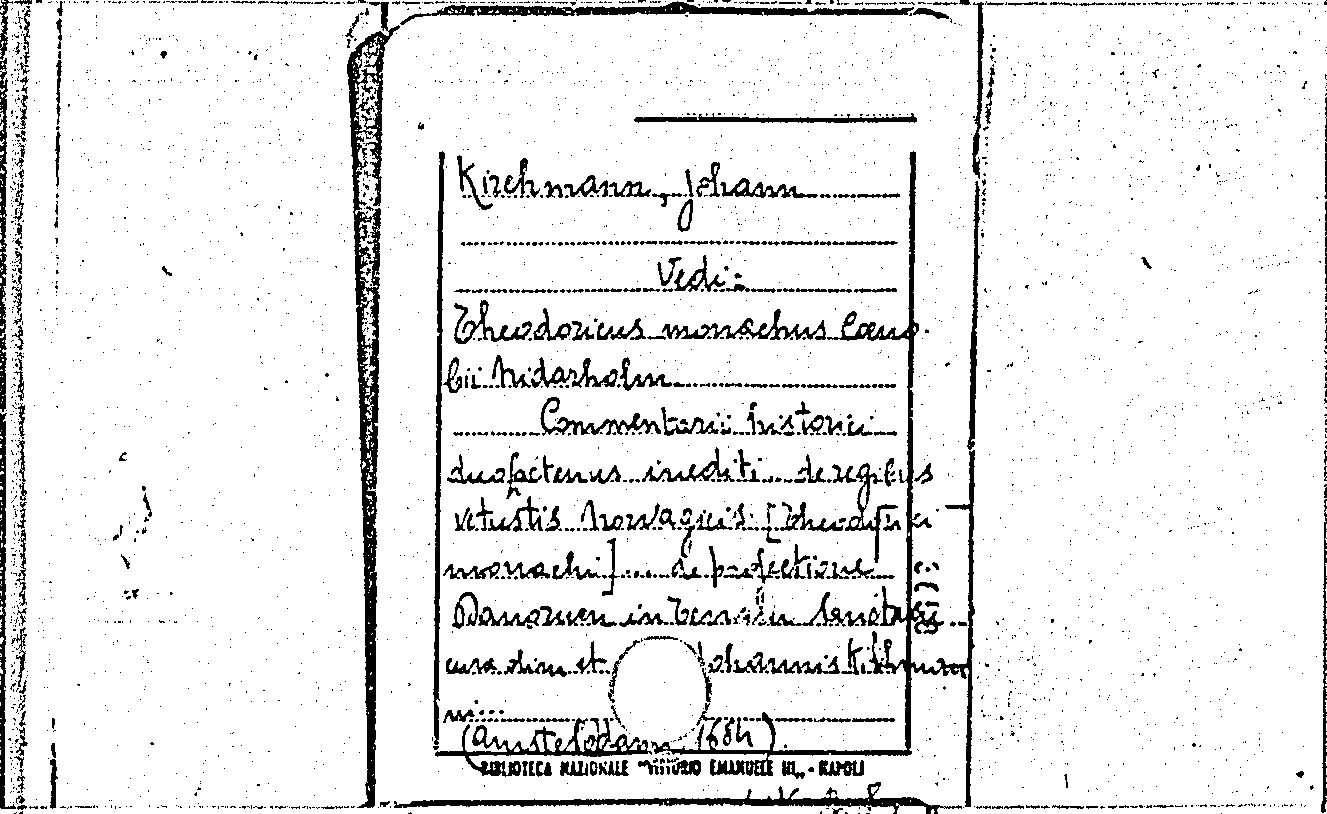 Kirchmann, Johann
Vedi:
Theodoricus monachus Coeno-
bii Nidarholm
Commentarii historici
duo hactenus inediti.. de regibus
vetustis Norvagicis [Theodorici
monachi]... de profectione
Danorum in Terram Sanctam...
cura olim et Johannis Kirchman
ni...
(Amstelodami 1684).
BIBLIOTECA NAZIONALE "VITTORIO EMANUELE III„ - NAPOLI